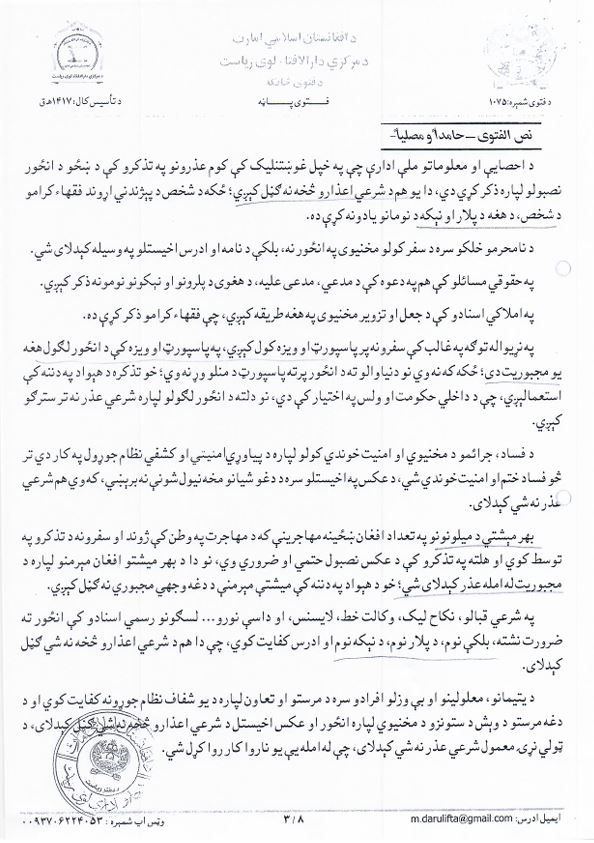 د افغانستان اسلامي امارت
د مرکزي دارالافتاء لوی ریاست
د فتوی څانګه
د فتوی شمېره: ۱۰۷۵
فــتــوی پــاڼه
د تأسیس کال: ۱۴۱۷هـ ق
نص الفتوی – حامداً و مصلیاً-
د احصایې او معلوماتو ملي ادارې چې په خپل غوښتنلیک کې کوم عذرونو په تذکرو کې د ښځو د انځور
نصبولو لپاره ذکر کړي دي، دا یو هم د شرعي اعذارو څخه نه ګڼل کېږي؛ ځکه د شخص د پېژندنې اړوند فقهاء کرامو
د شخص، د هغه د پلار او نېکه د نومانو یادونه کړې ده.
د نامحرمو خلکو سره د سفر کولو مخنیوی په انځور نه، بلکې د نامه او ادرس اخیستلو په وسیله کېدلای شي.
په حقوقي مسائلو کې هم په دعوه کې د مدعي، مدعی علیه، د هغوی د پلرونو او نېکونو نومونه ذکر کېږي.
په املاکي اسنادو کې د جعل او تزویر مخنیوی په هغه طریقه کېږي، چې فقهاء کرامو ذکر کړې ده.
په نړیواله توګه په غالب کې سفرونه پر پاسپورټ او ویزه کول کېږي، په پاسپورټ او ویزه کې د انځور لګول هغه
یو مجبوریت دی؛ ځکه که نه وي نو د نیا والو ته د انځور پرته پاسپورټ د منلو وړ نه وي؛ خو تذکره د هېواد په دننه کې
استعمالېږي، چې د داخلي حکومت او ولس په اختیار کې دي، نو دلته د انځور لګولو لپاره شرعي عذر نه تر سترګو
کېږي.
د فساد، جرائمو د مخنیوي او امنیت خوندي کولو لپاره د پیاوړي امنیتي او کشفي نظام جوړول په کار دي تر
څو فساد ختم او امنیت خوندي شي، د عکس په اخیستلو سره د دغو شیانو مخه نیول شونې نه برېښي، که وي هم شرعي
عذر نه شي کېدلای.
بهر مېشتې د میلونونو په تعداد افغان ښځینه مهاجرینې که د مهاجرت په وطن کې ژوند او سفرونه د تذکرو په
توسط کوي او هلته په تذکرو کې د عکس نصبول حتمي او ضروري وي، نو دا د بهر مېشتو افغان مېرمنو لپاره د
مجبوریت له امله عذر کېدلای شي؛ خو د هېواد په دننه کې مېشتې مېرمنې د دغه وجهې مجبورې نه ګڼل کېږي.
په شرعي قبالو، نکاح لیک، وکالت خط، لایسنس، او داسې نورو... لسګونو رسمي اسنادو کې انځور ته
ضرورت نشته، بلکې نوم، د پلار نوم، د نېکه نوم او ادرس کفایت کوي، چې دا هم د شرعي اعذارو څخه نه شي ګڼل
کېدلای.
د یتیمانو، معلولینو او بې وزلو افرادو سره د مرستو او تعاون لپاره د یو شفاف نظام جوړونه کفایت کوي او د
دغه مرستو د وېش د ستونزو د مخنیوي لپاره انځور او عکس اخیستل د شرعي اعذارو څخه نه شي ګڼل کېدلای، د
ټولې نړۍ معمول شرعي عذر نه شي کېدلای، چې له امله یې یو ناروا کار روا کړل شي.
ایمیل ادرس: m.darulifta@gmail.com
۳ / ۸
وټس اپ شمېره: ۰۰۹۳۷۰۶۲۲۴۰۵۳